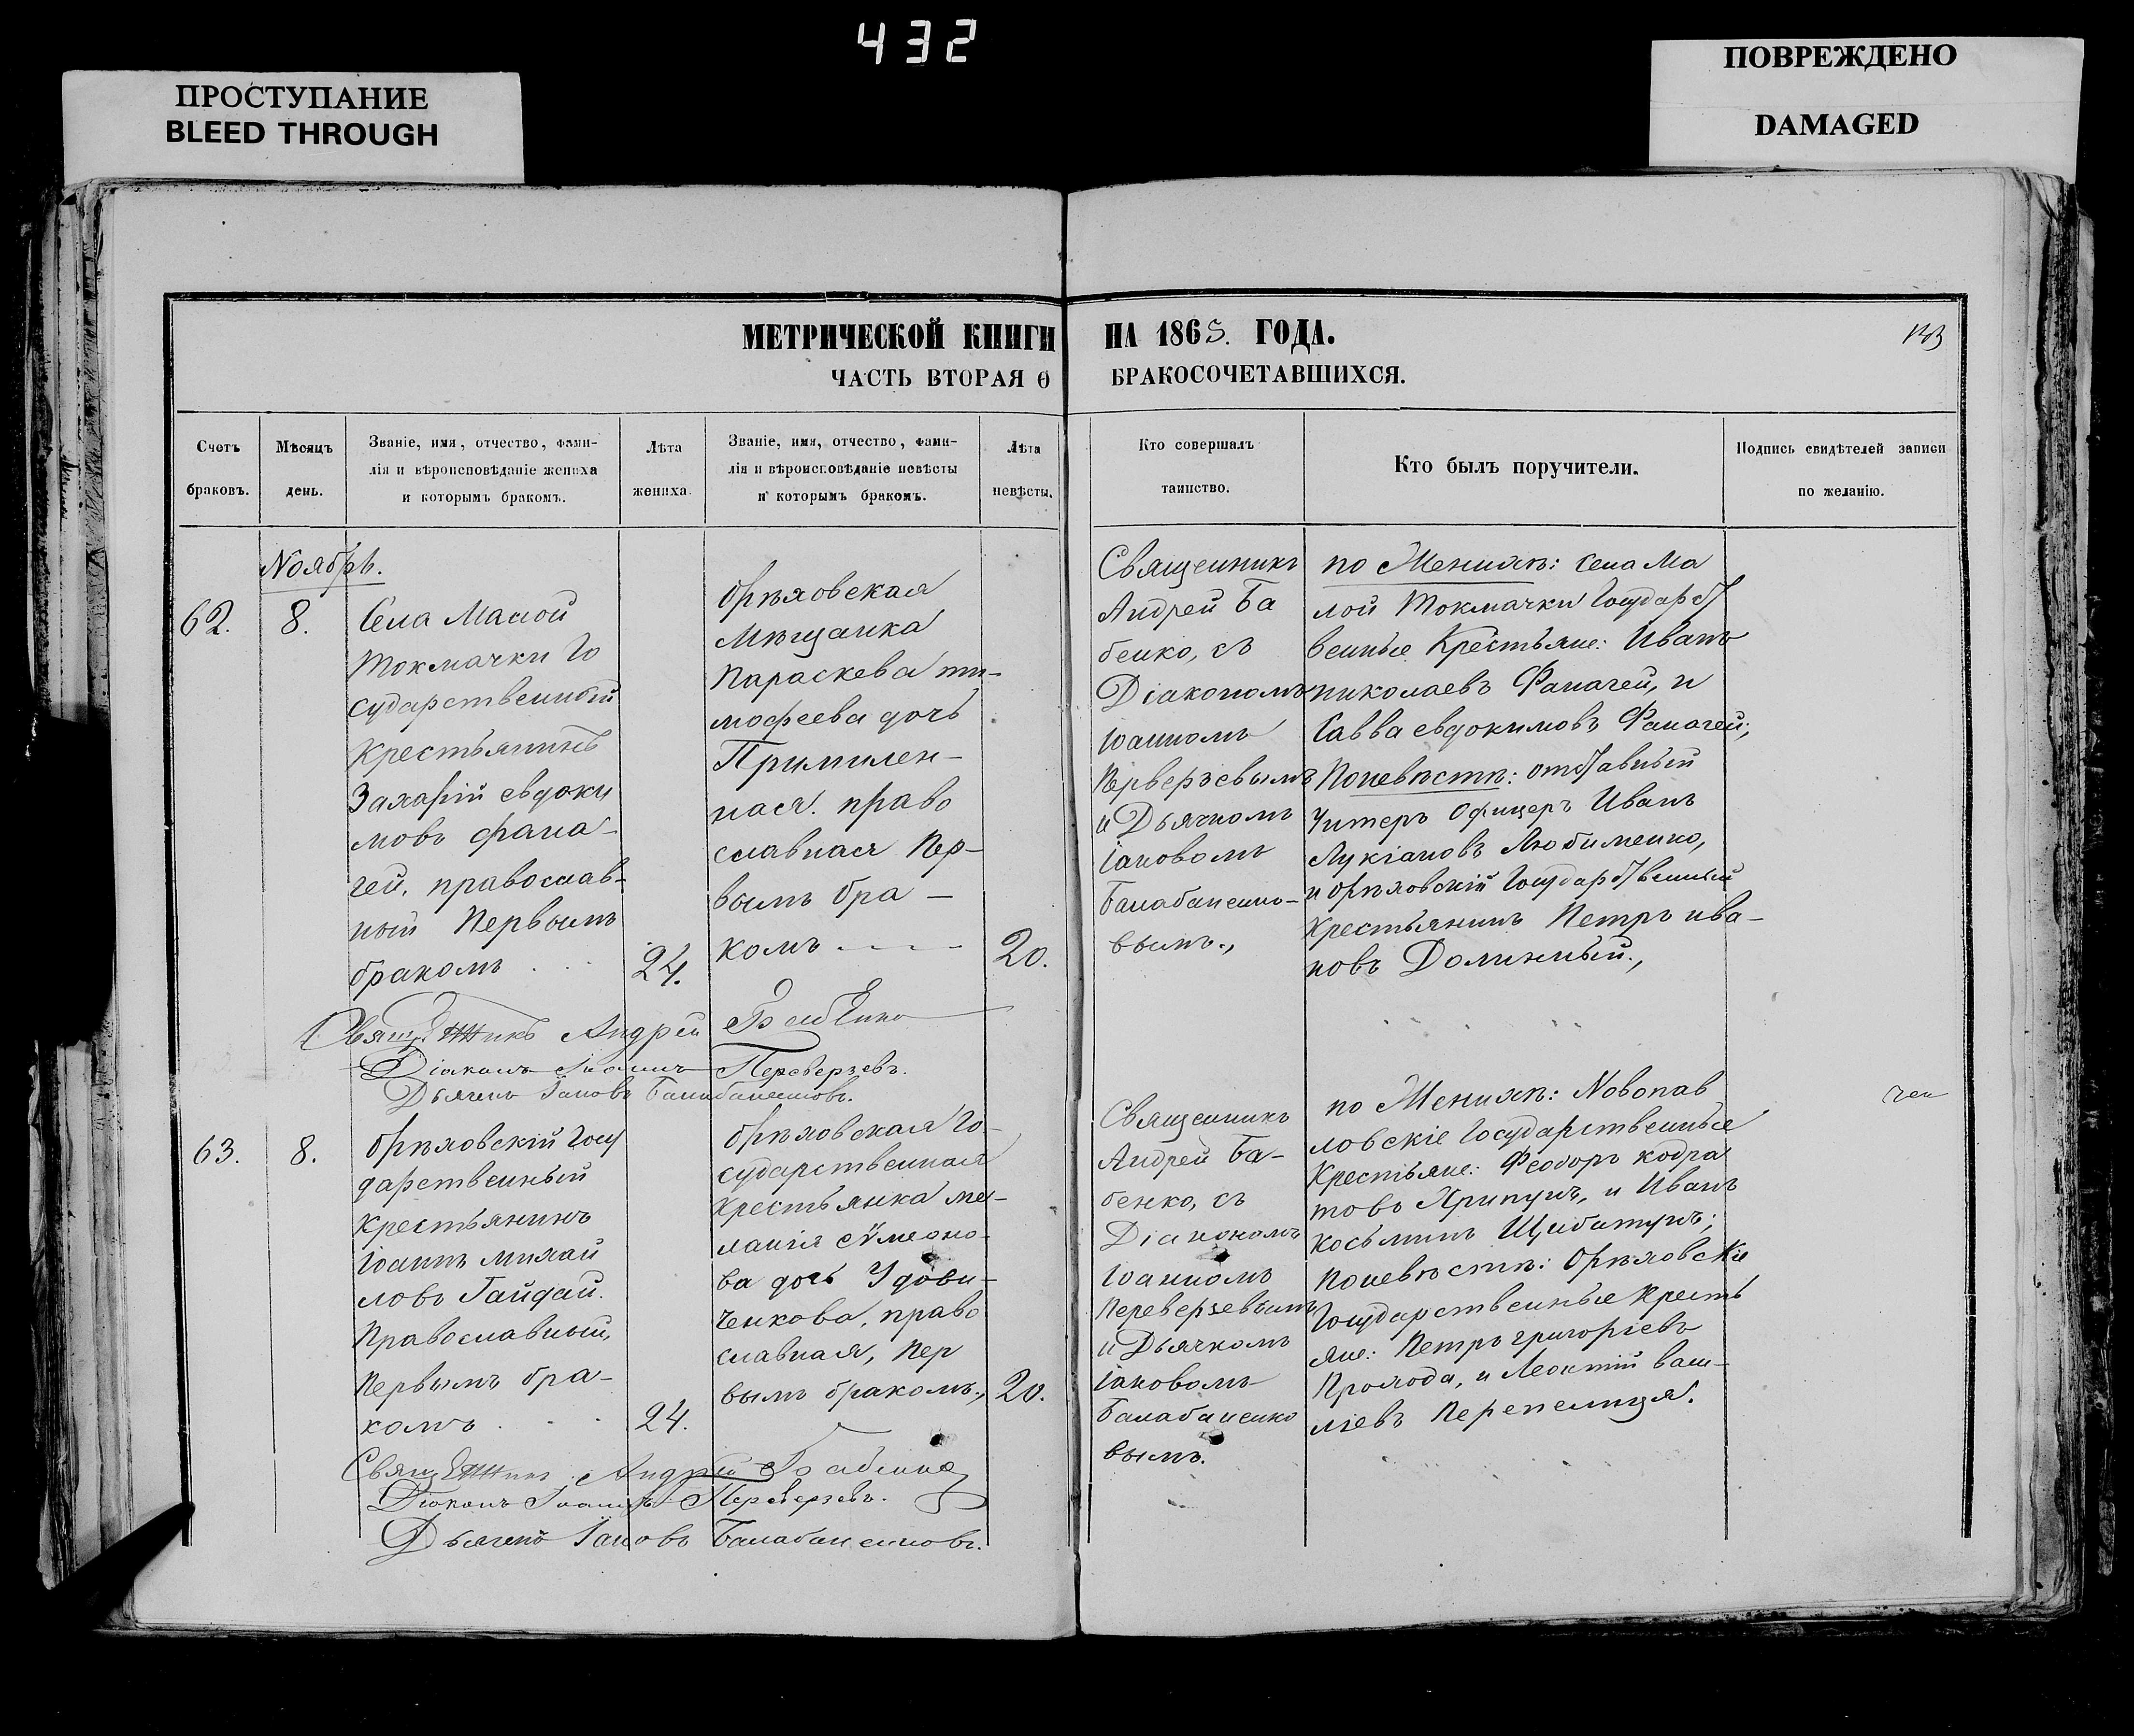 432
ПРОСТУПАНИЕ
BLEED THROUGH
ПОВРЕЖДЕНО
DAMAGED
МЕТРИЧЕСКОЙ КНИГИ НА 1865. ГОДА.
ЧАСТЬ ВТОРАЯ Ѳ БРАКОСОЧЕТАВШИХСЯ.
Счетъ
браковъ.
Мѣсяцъ
день.
Званіе, имя, отчество, фами-
лія и вѣроисповѣданіе жениха
и которымъ бракомъ.
Лѣта
жениха.
Званіе, имя, отчество, фами-
лія и вѣроисповѣданіе невѣсты
и которымъ бракомъ.
Лѣта
невѣсты.
Кто совершалъ
таинство.
Кто былъ поручители.
Подпись свидѣтелей записи
по желанію.
Ноябрь.
62.
8.
Села Малой
Токмачки Го
сударственный
Крестьянинъ
Захарій евдоки
мовъ Фана-
гей, православ-
ный Первымъ
бракомъ . . .
24.
Орѣховская
Мѣщанка
Параскева ти-
мофеева дочь
Примилен-
ная. право
славная Пер-
вымъ бра-
комъ - - - -
20.
Священникъ
Андрей Ба
бенко, съ
Діакономъ
Іоанномъ
Перверзевымъ
и Дьячкомъ
Іаковомъ
Балабаненко-
вымъ.,
по Женихѣ: села Ма
лой Токмачки Государст
венные Крестьяне: Иванъ
николаевъ Фанагей, и
Савва евдокимовъ Фанагей;
Поневѣстѣ: отставный
Унтеръ Офицеръ Иванъ
Лукіановъ Любименко,
и Орѣховскій Государственный
Крестьянинъ Петръ ива-
новъ Долинный.,
Священникъ Андрей Бабенко
Діаконъ Іоаннъ Переверзевъ.
Дьячекъ Іаковъ Балабаненковъ.
63.
8.
Орѣховскій Госу
дарственный
Крестьянинъ
Іоаннъ михай
ловъ Гайдай.
Православный,
Первымъ бра-
комъ . . .
24.
Орѣховская Го-
сударственная
Крестьянка ме-
ланія сѵмеоно-
ва дочь Удови-
ченкова, право
славная, Пер
вымъ бракомъ.,
20.
Священникъ
Андрей Ба-
бенко, съ
Діакономъ
Іоанномъ
Переверзевымъ
и Дьячкомъ
Іаковомъ
Балабаненко
вымъ.
по Женихѣ: Новопав
ловскіе Государственные
Крестьяне: Феодоръ кодра
товъ Хрипунъ, и Иванъ
косьминъ
Поневѣстѣ: Орѣховскіе
Государственные Кресть
яне: Петръ григоріевъ
Прохода, и Леонтій васи-
ліевъ Перепелица.
Священникъ Андрей Бабенко
Діаконъ Іоаннъ Переверзевъ.
Дьячекъ Іаковъ Балабаненковъ.